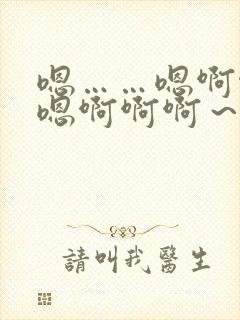 嗯……嗯啊
嗯啊啊啊～
請叫我醫生